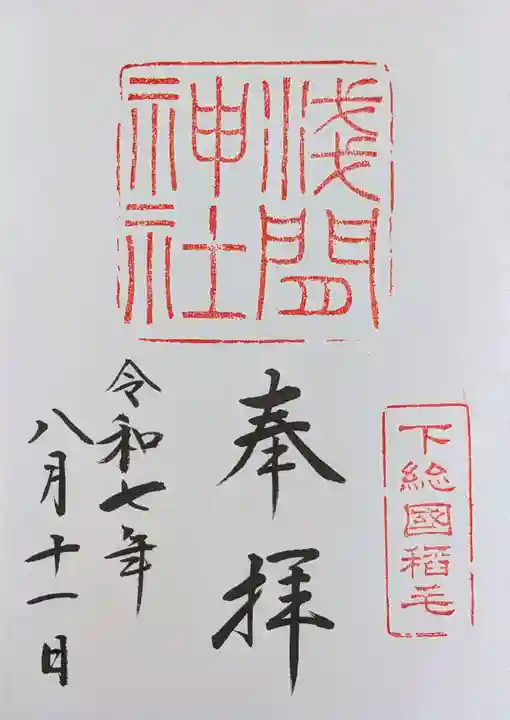 下総國稲毛
淺間
神社
奉拝
令和七年
八月十一日